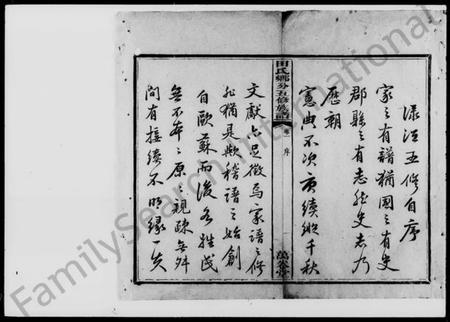 五修自序
家之有譜猶國之有史
郡縣之有志然史志乃
歷朝
憲典不次賡續縱千秋
田氏鄉分五修族譜
卷一 序
萬卷堂
文獻亦足徵焉家譜之修
猶是歟稽譜之始創
自歐蘇而後各姓氏
無不本之原之親疎無
間有接續不明緣一失
FamilySearch International